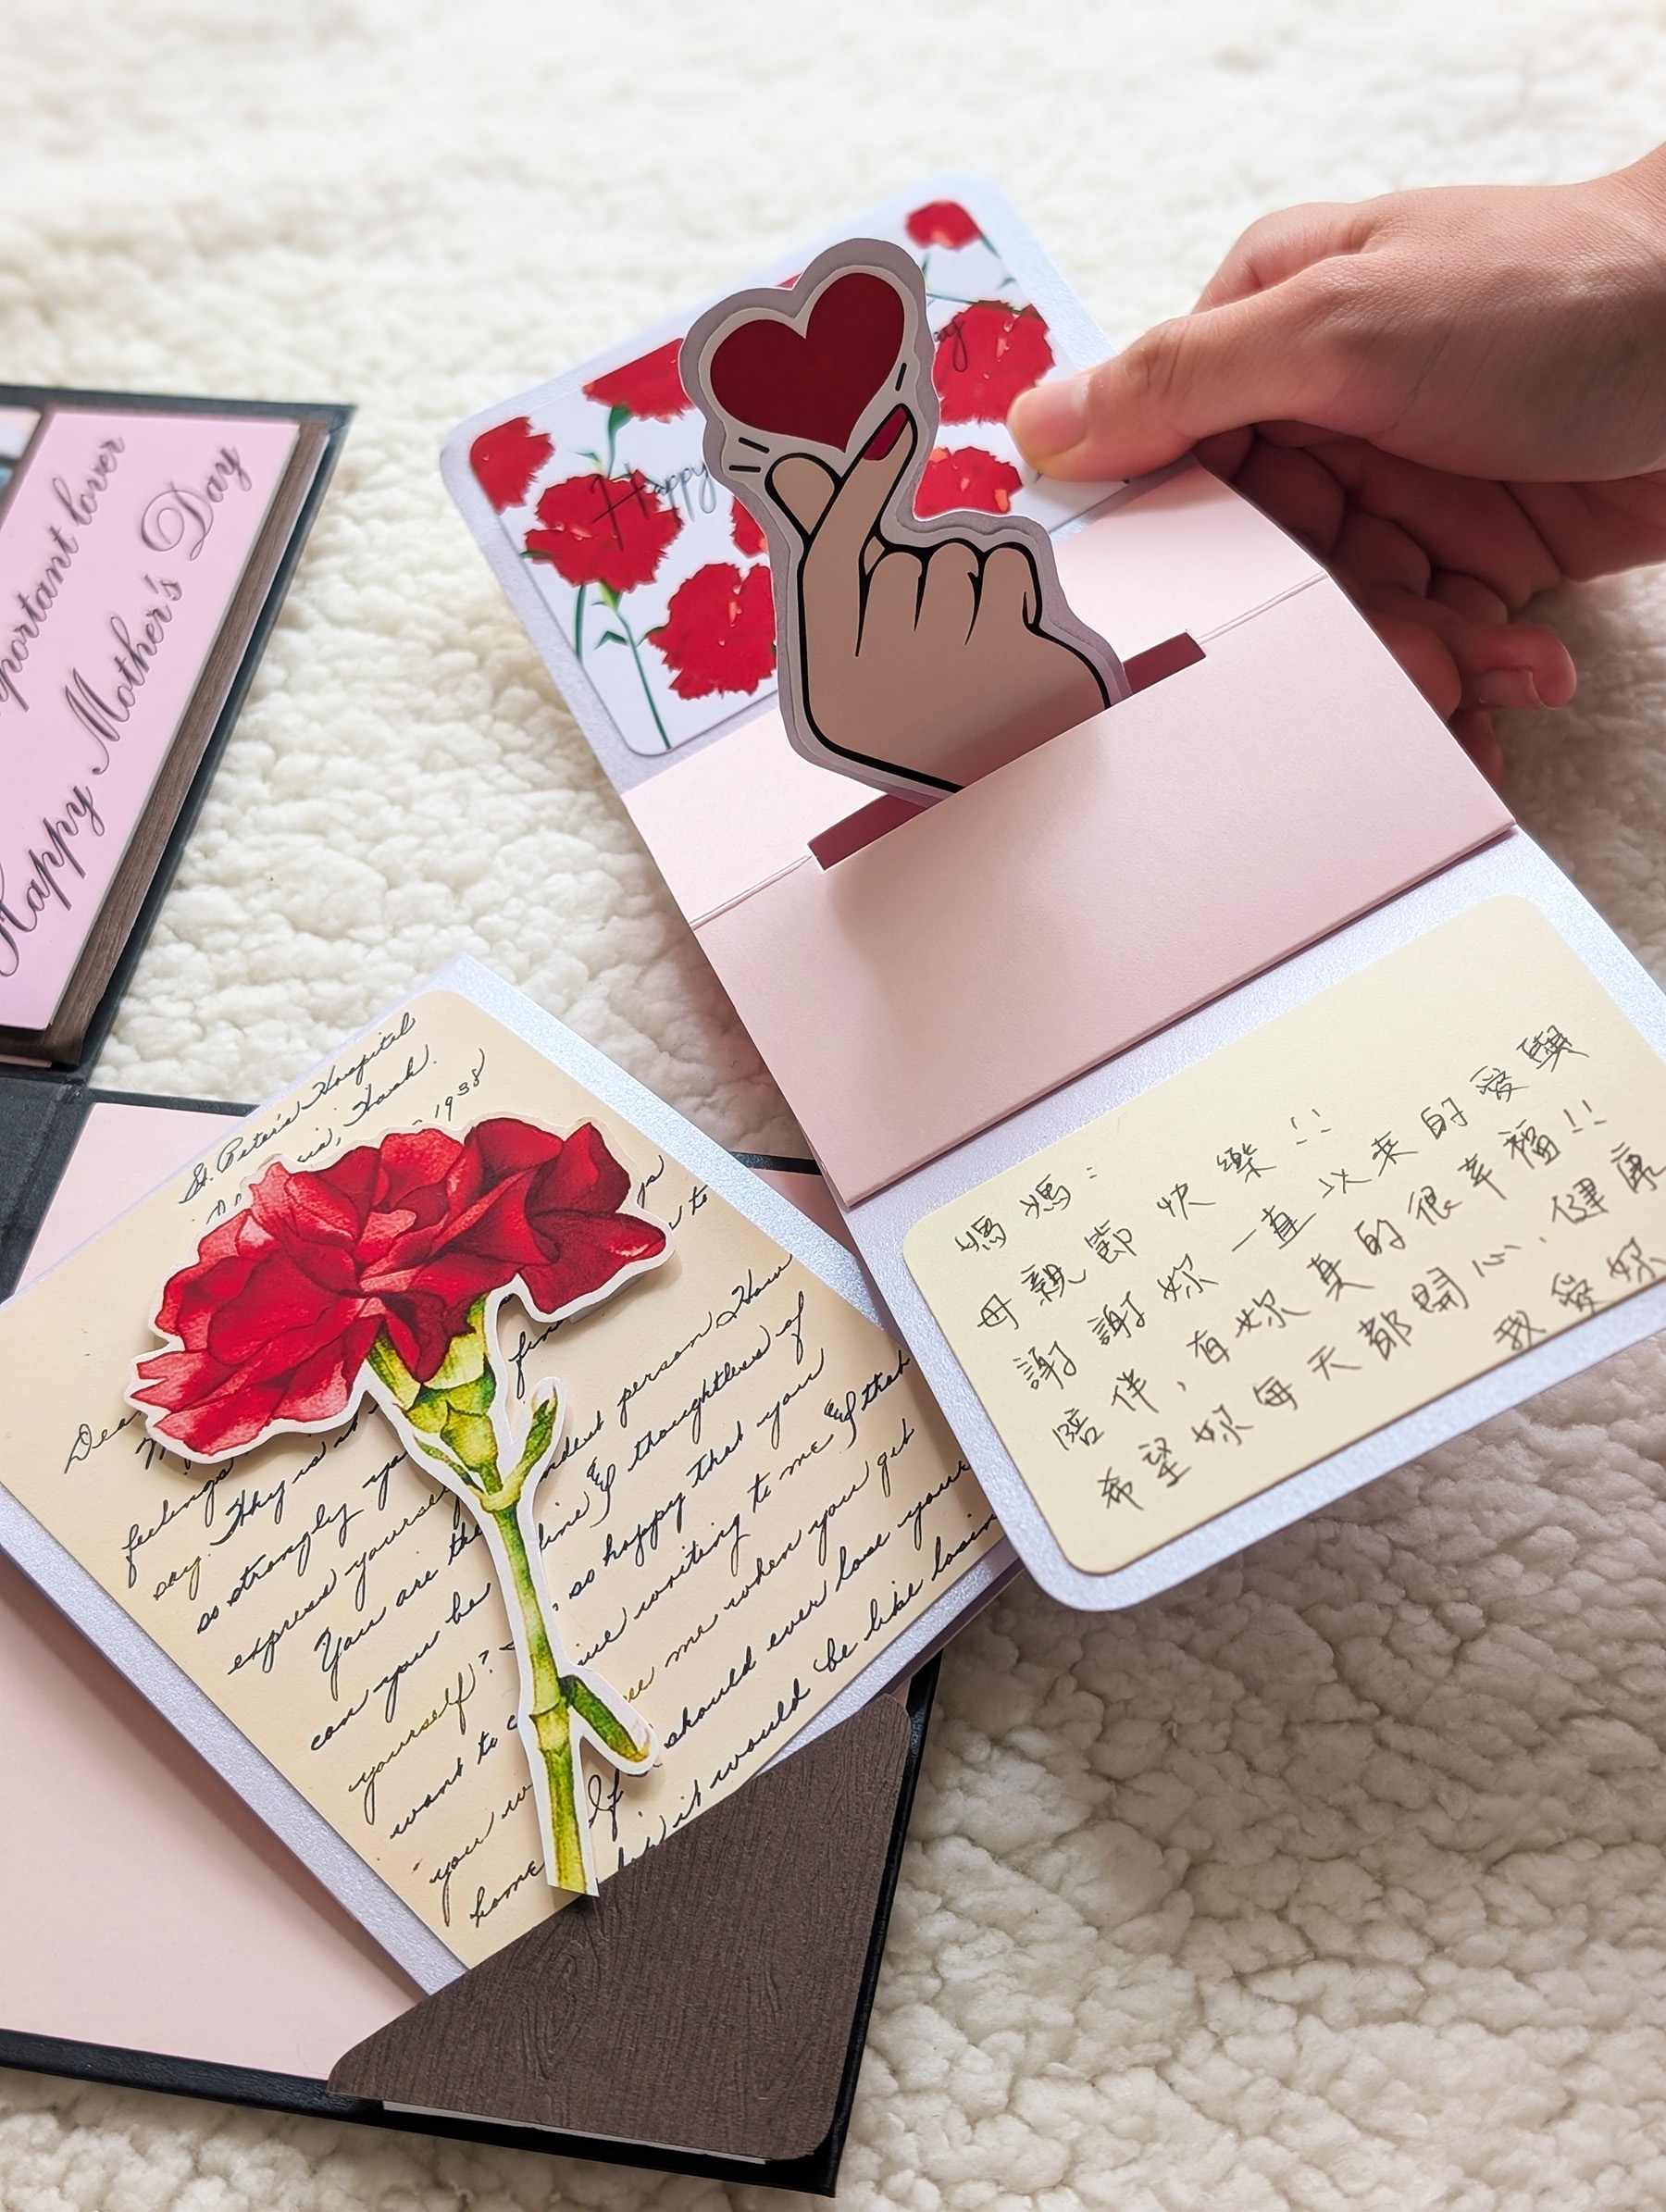 portant lover
Happy Mother's Day
Happy
媽媽：
母親節快樂!!
謝謝妳一直以來的愛與
陪伴，有妳真的很幸福!!
希望妳每天都開心、健康
我愛妳
St. Peter's Hospital
Wash.
1938
to
Dear
feelings
say. Why is
so strongly
express yourself
You are the
kindest person
How
can you be
fine & thoughtless of
yourself?
so happy that you
want to
writing to me & that
you
me when you get
home
If
should ever lose you
it would be like losin